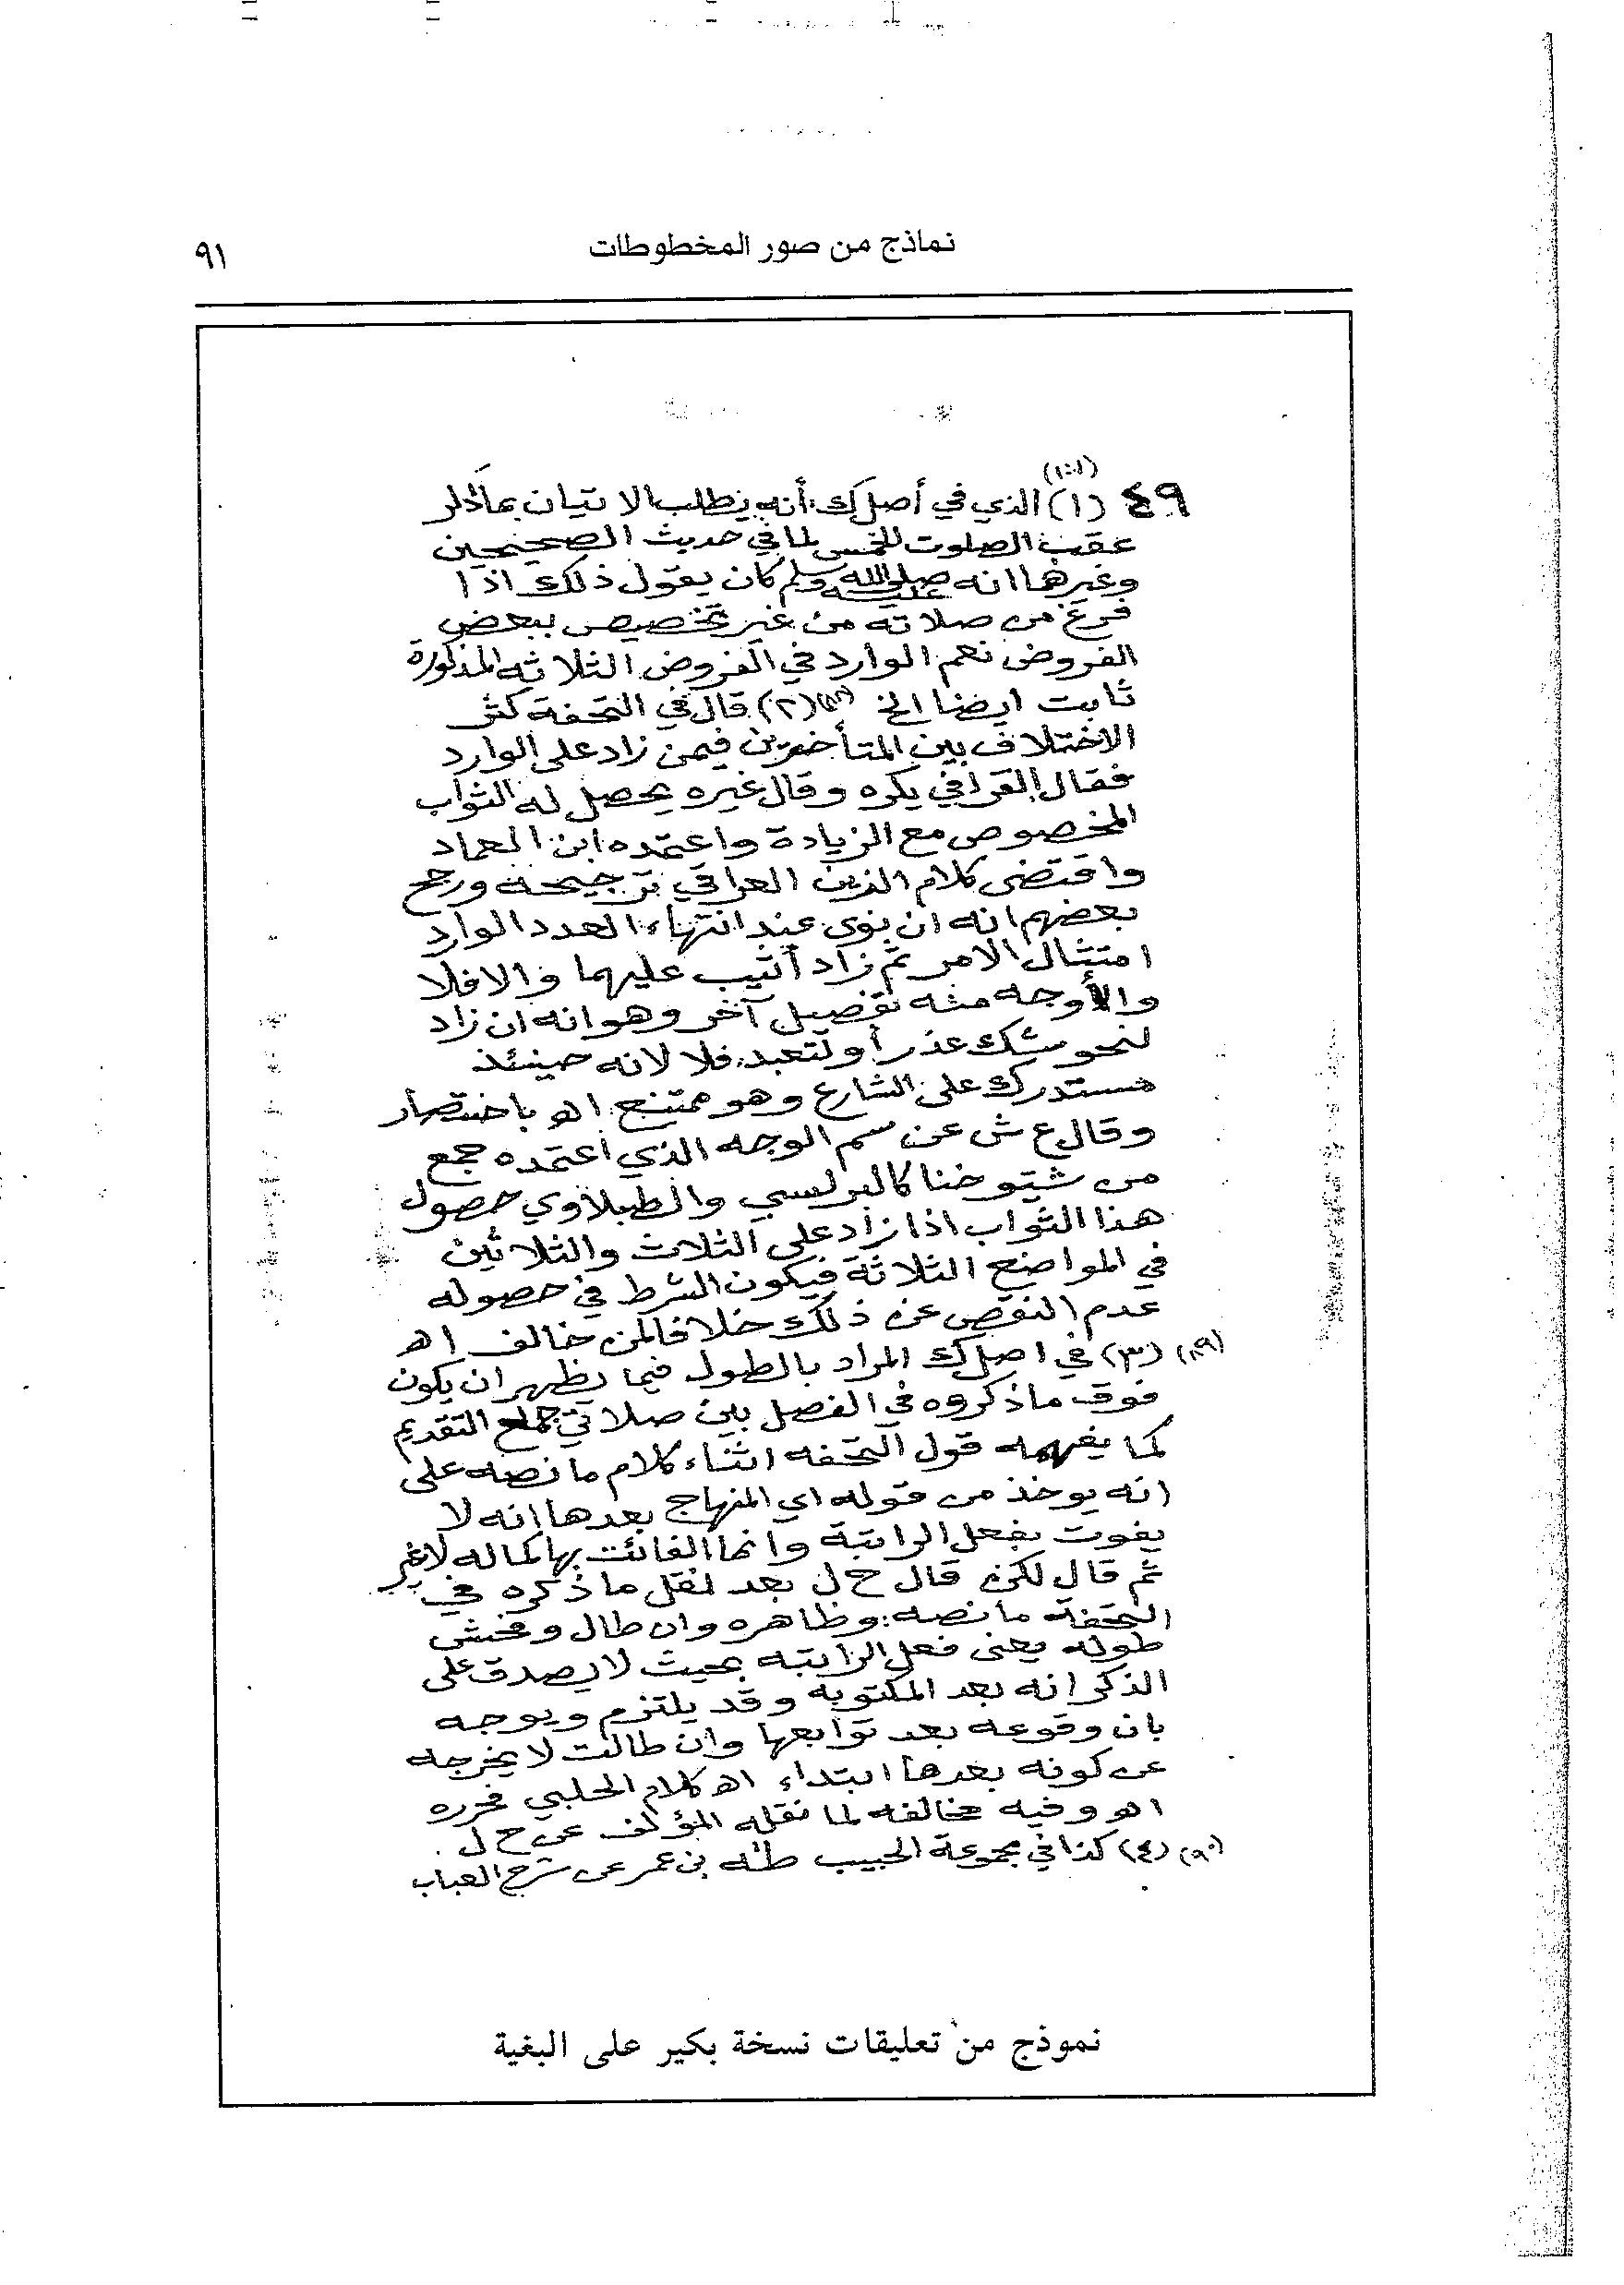 نماذج من صور المخطوطات
٩١
٤٩ (١) الذي في أصل ك: أنه يطلب الاتيان بما ذكر
عقب الصلوت الخمس لما في حديث الصحيحين
وغيرها انه صلى الله عليه وسلم كان يقول ذلك اذا
فرغ من صلاته من غير تخصيص ببعض
الفروض نعم الوارد في الفروض الثلاثه المذكورة
ثابت ايضا الخ (٢) قال في التحفة كثر
الاختلاف بين المتأخرين فيمن زاد على الوارد
فقال القرافي يكره وقال غيره يحصل له الثواب
المخصوص مع الزيادة واعتمده ابن العماد
واقتضى كلام الزين العراقي ترجيحه ورجح
بعضهم انه ان نوى عند انتهاء العدد الوارد
امتثال الامر ثم زاد أثيب عليهما والا فلا
والأوجه منه تفصيل آخر وهو انه ان زاد
لنحو شك عذر أو لتعبد فلا لانه حينئذ
مستدرك على الشارع وهو ممتنع اه باختصار
وقال ع ش عن سم الوجه الذي اعتمده جمع
من شيوخنا كالبرلسي والطبلاوي حصول
هذا الثواب اذا زاد على الثلاث والثلاثين
في المواضع الثلاثة فيكون الشرط في حصوله
عدم النقص عن ذلك خلافا لمن خالف اه
(٣) في اصل ك المراد بالطول فيما يظهر ان يكون
فوق ما ذكروه في الفصل بين صلاتي جمع التقديم
كما يفهمه قول التحفه اثناء كلام ما نصه على
انه يوخذ من قوله اي المنهاج بعدها انه لا
يفوت بفعل الراتبة وانما الفائت بها كماله لا غير
ثم قال لكن قال ح ل بعد نقل ما ذكره في
التحفة ما نصه: وظاهره وان طال وفحش
طوله يعنى فعل الراتبه بحيث لا يصدق على
الذكر انه بعد المكتوبة وقد يلتزم ويوجه
بان وقوعه بعد توابعها وان طالت لا يخرجه
عن كونه بعدها ابتداء اه كلام الحلبي فحرره
اه وفيه مخالفه لما نقله المؤلف عن ح ل.
(٤) كذا في مجموعة الحبيب طه بن عمر عن شرح العباب
نموذج من تعليقات نسخة بكير على البغية